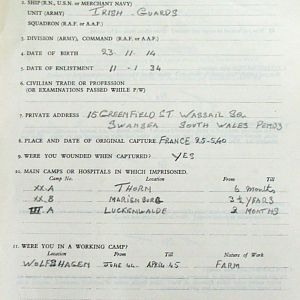 2. SHIP (R.N., U.S.N. or MERCHANT NAVY)
UNIT (ARMY) IRISH GUARDS
SQUADRON (R.A.F. or A.A.F.)
3. DIVISION (ARMY), COMMAND (R.A.F. or A.A.F.)
4. DATE OF BIRTH 23. 11. 14
5. DATE OF ENLISTMENT 11 - 1. 34
6. CIVILIAN TRADE OR PROFESSION
(OR EXAMINATIONS PASSED WHILE P/W)
7. PRIVATE ADDRESS 15 GREENFIELD ST WASSAIL SQ.
SWANSEA SOUTH WALES
8. PLACE AND DATE OF ORIGINAL CAPTURE FRANCE 25-5-40
9. WERE YOU WOUNDED WHEN CAPTURED? YES
10. MAIN CAMPS OR HOSPITALS IN WHICH IMPRISONED.
Camp No. Location From Till
XX.A THORN 6 Months
XX.B MARIENBURG 3½ YEARS
III A LUCKENWALDE 2 MONTHS
11. WERE YOU IN A WORKING CAMP?
Location From Till Nature of Work
WOLFSHAGEN JUNE 44 APRIL 45 FARM